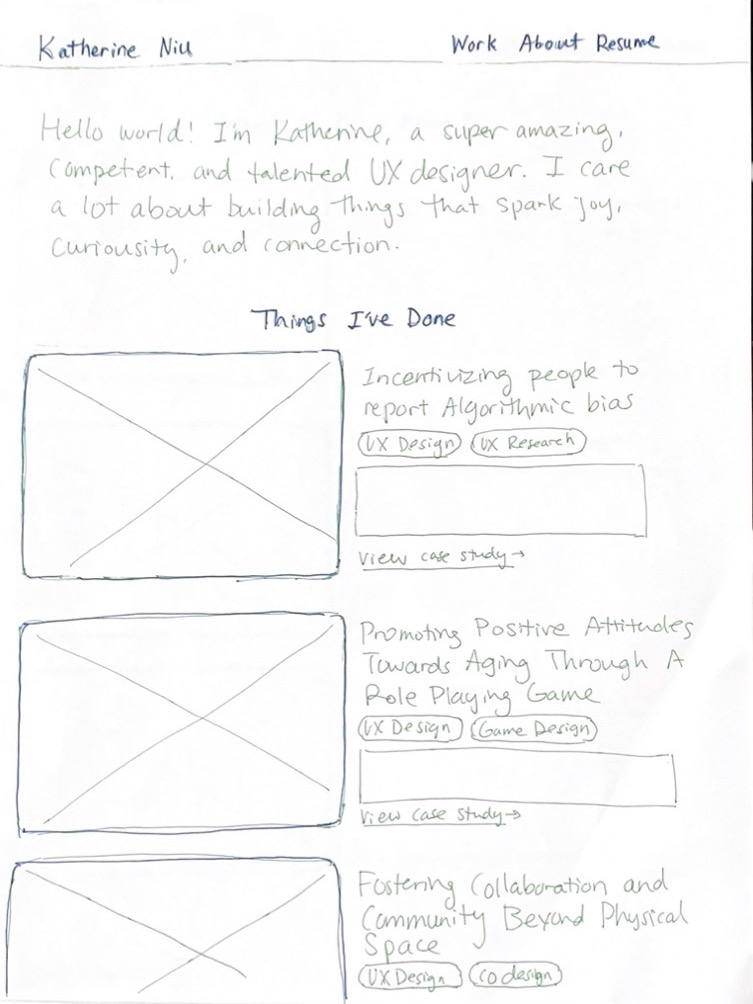 Katherine Niu
Work About Resume
Hello world! I'm Katherine, a super amazing,
competent, and talented UX designer. I care
a lot about building things that spark joy,
curiousity, and connection.
Things I've Done
Incentivizing people to
report Algorithmic bias
UX Design UX Research
View case study→
Promoting Positive Attitudes
Towards Aging Through A
Role Playing Game
UX Design Game Design
View case study→
Fostering Collaboration and
Community Beyond Physical
Space
UX Design co design